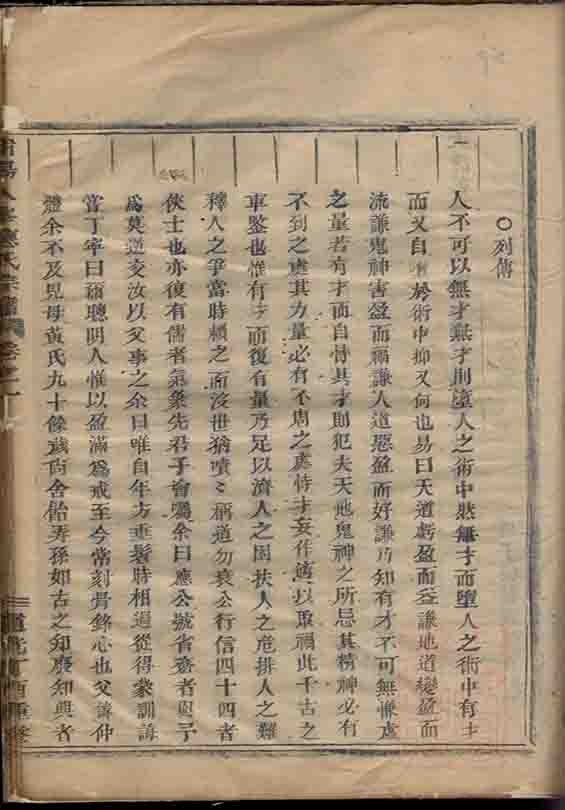 ○列傳
人不可以無才無才則墮人之術中然無才而墮人之術中有才
而又自墮於術中抑又何也易曰天道虧盈而益謙地道變盈而
流謙鬼神害盈而福謙人道惡盈而好謙乃知有才不可無慚虛
之量若有才而自恃其才則犯夫天地鬼神之所忌其精神必有
不到之處其力量必有不周之處恃才妄作適以取禍此千古之
車鑒也惟有才而復有量乃足以濟人之困扶人之危排人之難
釋人之爭當時賴之而沒世猶嘖々稱道勿衰公行信四十四者
俠士也亦復有儒者氣象先君子會囑余曰應公誠省意者與予
爲莫逆交汝以父事之余曰唯自年方垂髫時相過從得蒙訓誨
嘗丁寧曰爾聰明人惟以盈滿爲戒至今常刻骨銘心也父諱仲
燈余不及見母黃氏九十餘歲尚含飴弄孫如古之知慶知興者
陽 應氏宗譜 卷之一
道光丁酉重修